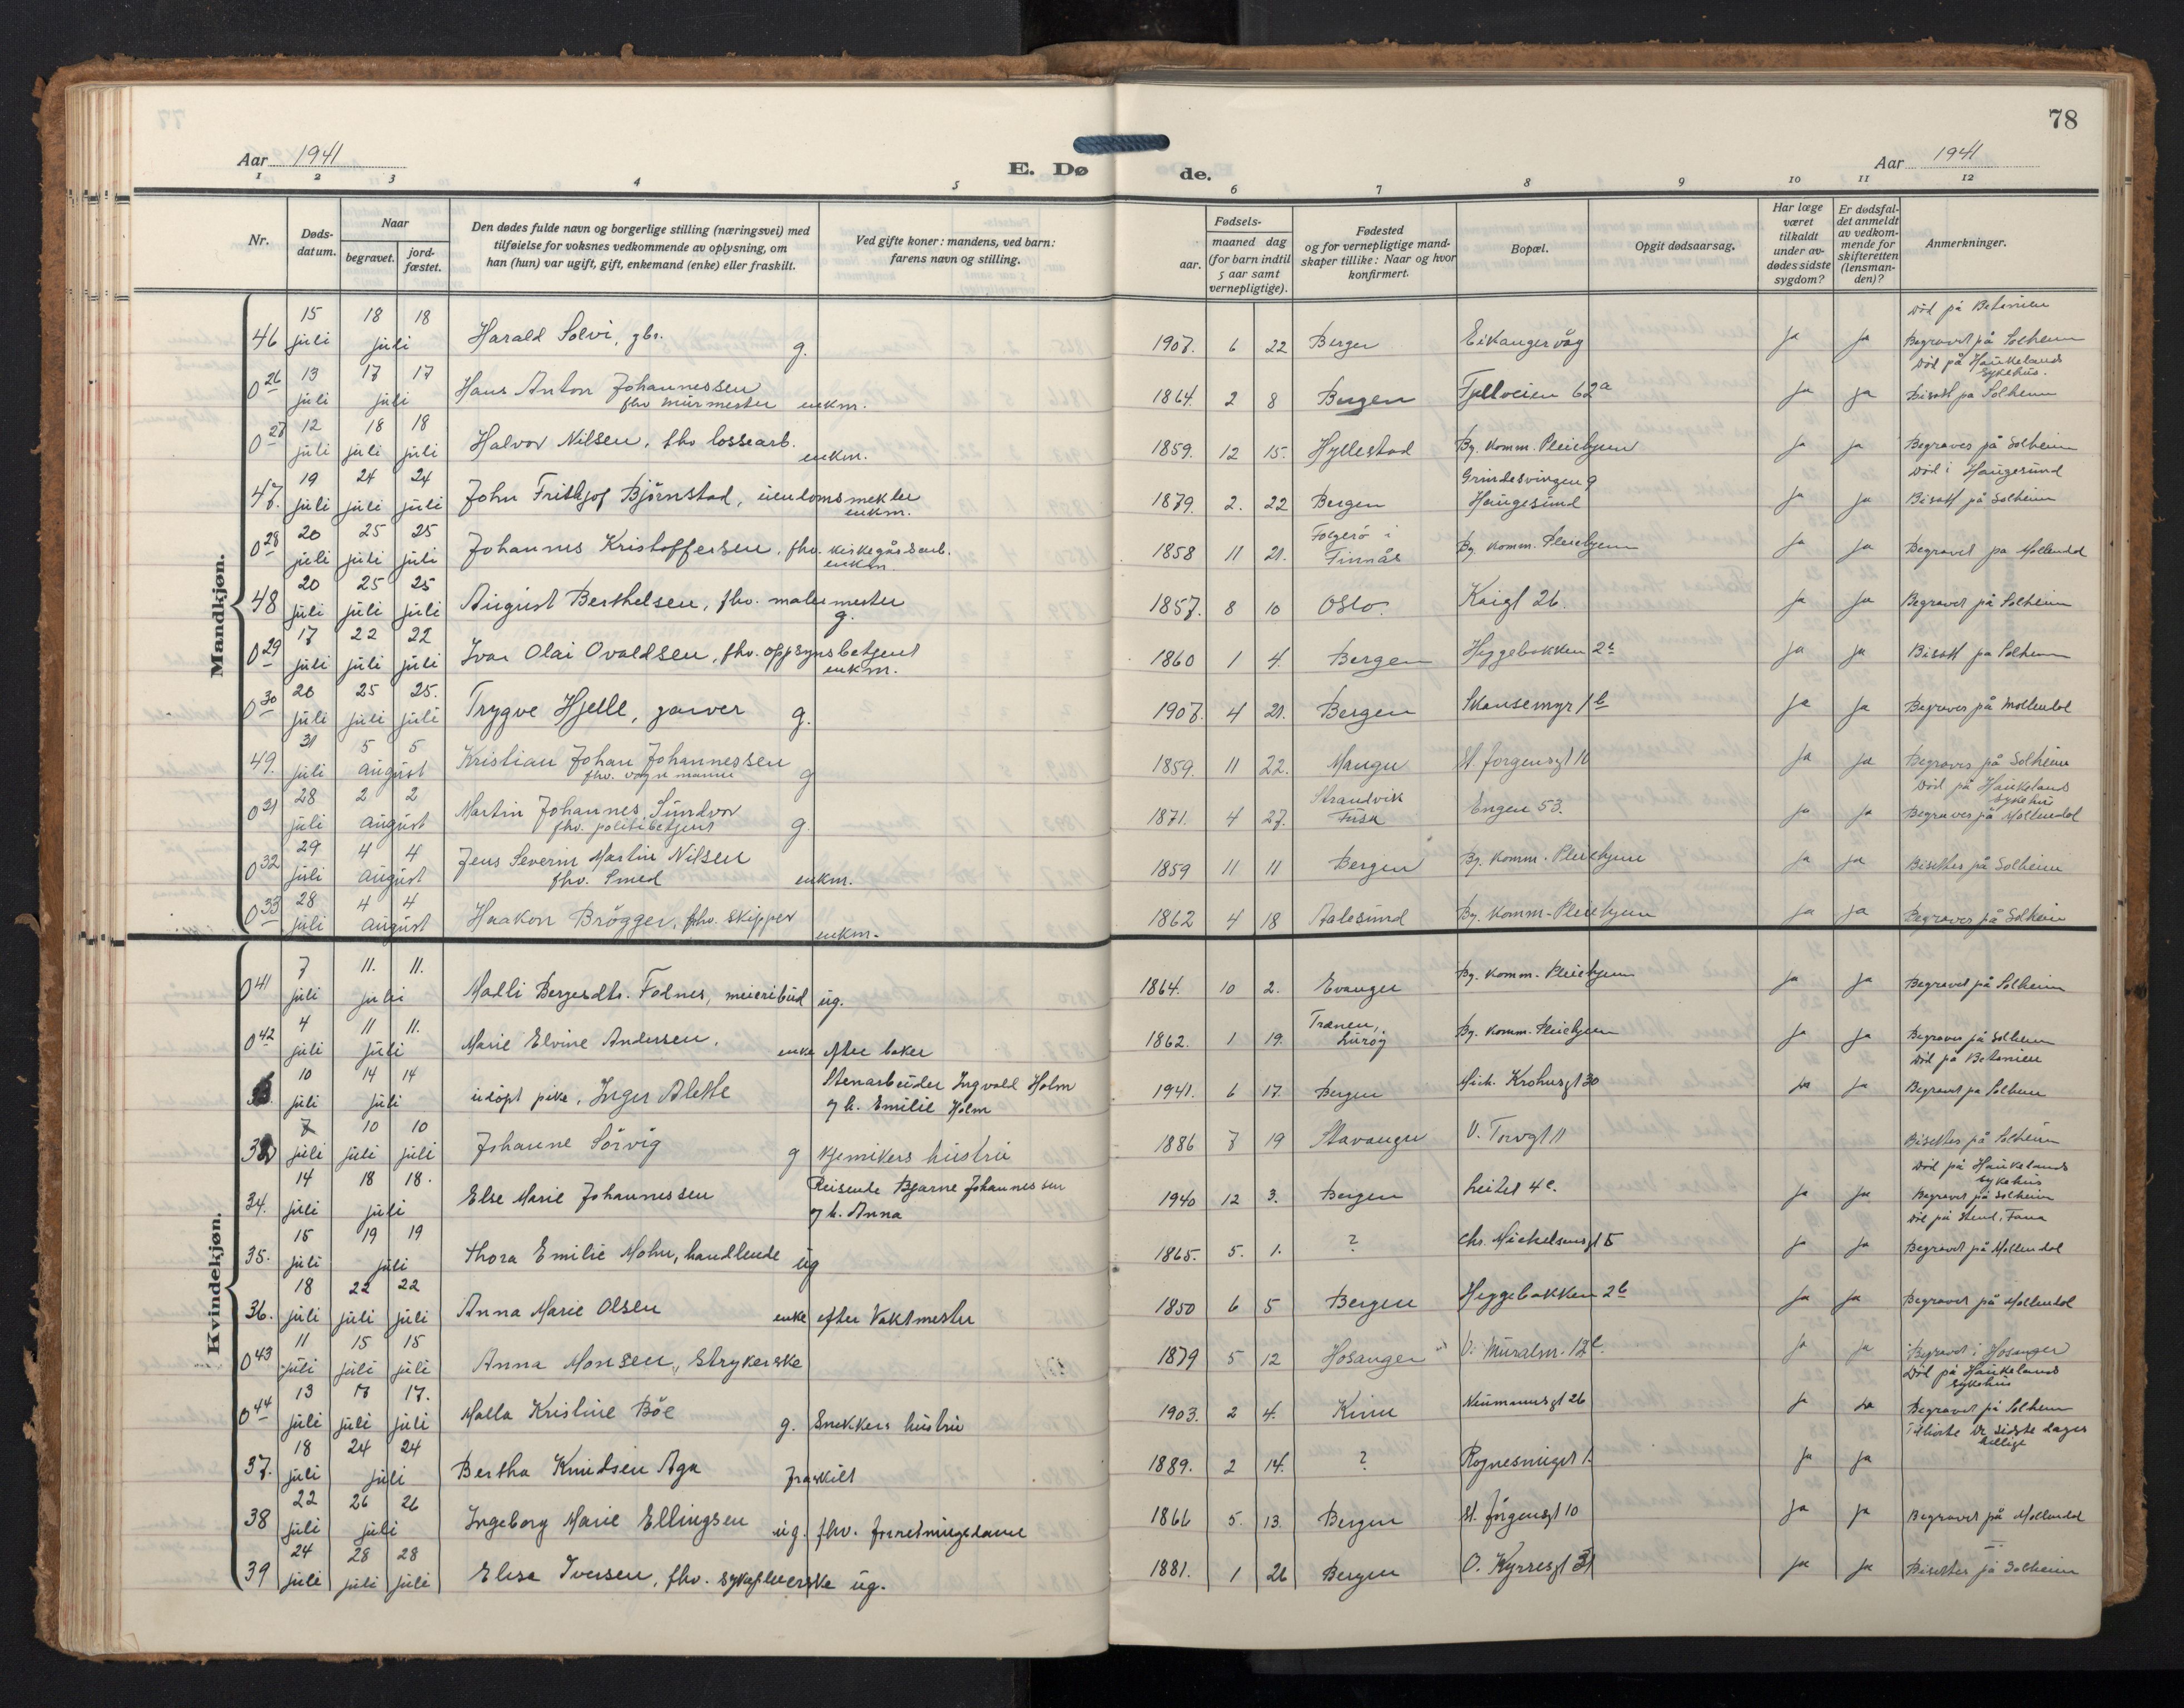 78
Aar 1941
E. Dø de.
Aar 1941
1 2 3 4 5 6 7 8 9 10 11 12
Nr. Døds-datum. Naar begravet. jord-fæstet. Den dødes fulde navn og borgerlige stilling (næringsvei) med tilføielse for voksnes vedkommende av oplysning, om han (hun) var ugift, gift, enkemand (enke) eller fraskilt. Ved gifte koner: mandens, ved barn: farens navn og stilling. Fødsels- aar. maaned dag (for barn indtil 5 aar samt vernepligtige). Fødested og for vernepligtige mandskaper tillike: Naar og hvor konfirmert. Bopæl. Opgit dødsaarsag. Har læge været tilkaldt under avdødes sidste sygdom? Er dødsfaldet anmeldt av vedkommende for skifteretten (lensmanden)? Anmerkninger.
Mandkjøn.
46 15 juli 18 18 juli Harald Solvi, gbr. g. 1907. 6 22 Bergen Eikangervåg ja ja Död på Betanien Begravet på Solheim
0 26 13 juli 17 17 juli Hans Anton Johannessen fhv murmester enkm. 1864. 2 8 Bergen Fjellveien 62a ja ja Död på Haukelands sykehus. Bisatt på Solheim
0 27 12 juli 18 juli 18 juli Halvor Nilsen, fhv lossearb. enkm. 1859. 12 15. Hyllestad By. komm. Pleiehjem ja ja Begraves på Solheim
47. 19 juli 24 juli 24 juli John Frithjof Björnstad, eiendomsmekler enkm. 1879. 2. 22 Bergen Grindesvingen 9 Haugesund ja ja Död i Haugesund Bisatt på Solheim
0 28 20 juli 25 juli 25 juli Johannes Kristoffersen, fhv. kirkegårdsarb. enkm 1858 11 21. Folgerö i Finnås By. komm. Pleiehjem ja ja Begravet på Møllendal
48 20 juli 25 juli 25 juli August Berthelsen, fhv. malermester g. 1857. 8 10 Oslo. Kaigt 26. ja ja Begravet på Solheim
0 29 17 juli 22 juli 22 juli Ivar Olai Ovaldsen, fhv. oppsynsbetjent enkm. 1860 1 4. Bergen Heggebakken 2b ja ja Bisatt på Solheim
0 30 20 juli 25 juli 25. juli Trygve Hjelle, garver g. 1907. 4 21. Bergen Skansemyr 1b ja ja Begraves på Møllendal
49. 31 juli 5 5 august Kristian Johan Johannessen fhv. vognmann g 1859. 11 22. Manger St. Jørgensgt 10 ja ja Begraves på Solheim
0 31 28 juli 2 2 august Martin Johannes Sundvor fhv. politibetjent g. 1871. 4 27. Strandvik Fusa Engen 53. ja ja Död på Haukelands sykehus Begraves på Møllendal
0 32 29 juli 4 4 august Jens Severin Martin Nilsen fhv. Smed enkm. 1859 11 11 Bergen By. komm. Pleiehjem ja ja Bisettes på Solheim
0 33 28 juli 4 4 august Haakon Brögger, fhv. skipper enkm. 1862 4 18 Aalesund By. komm. Pleiehjem ja ja Begraves på Solheim
Kvindekjøn.
0 41 7 juli 11. 11. juli Madli Bergesdtr. Fadnes, meieribud ug. 1864. 10 2. Evanger By. komm. Pleiehjem ja ja Begravet på Solheim
0 42 4 juli 11 11. juli Marie Elvine Andersen. enke efter baker 1862. 1 19. Trænen, Luröy By. komm. Pleiehjem ja ja Begraves på Solheim
10 juli 14 14 juli udöpt pike, Inger Alette Stenarbeider Ingvald Holm og h. Emilie Holm 1941. 6 17. Bergen Mich. Krohnsgt 30 ja ja Död på Betanien Begravet på Solheim
7 juli 10 juli 10 juli Johanne Sörvig g kjemikers hustru 1886 7 19 Stavanger V. Torvgt 11 Bisettes på Solheim
34. 14 juli 18 18. juli Else Marie Johannessen Reisende Bjarne Johannessen og h. Anna 1940 12 3. Bergen Leitet 4c. ja ja Död på Haukelands sykehus Begravet på Solheim
35. 15 juli 19 19 juli Thora Emilie Mohn, handlende ug 1865. 5. 1. ? Chr. Michelsensgt 5 ja ja Död på Stend, Fana Begravet på Møllendal
36. 18 juli 22 juli 22 juli Anna Marie Olsen enke efter Vaktmester 1850 6 5 Bergen Heggebakken 2b ja ja Begravet på Møllendal
0 43 11 juli 15 juli 15 juli Anna Monsen, Strykerske 1879 5 12 Hosanger V. Muralm. 12c. ja ja Begravet i Hosanger
0 44 13 juli 17 juli 17. juli Malla Kristine Böe g. Snekkers hustru 1903. 2 4. Kinn Neumannsgt 26 ja ja Död på Haukelands sykehus Begravet på Solheim
37. 18 juli 24 24 juli Bertha Knudsen Aga fraskilt 1889. 2 14. ? Rognesmuget 1. ja ja Tilhørte De sidste dagers hellige
38 22 juli 26 26 juli Ingeborg Marie Ellingsen ug. fhv. forretningsdame 1866 5. 13. Bergen St. Jörgensgt 10 ja ja Begravet på Møllendal
39 24 juli 28 juli 28 juli Elisa Iversen, fhv. sykepleierske ug. 1881. 1 26 Bergen O. Kyrresgt 31 ja ja Bisettes på Solheim